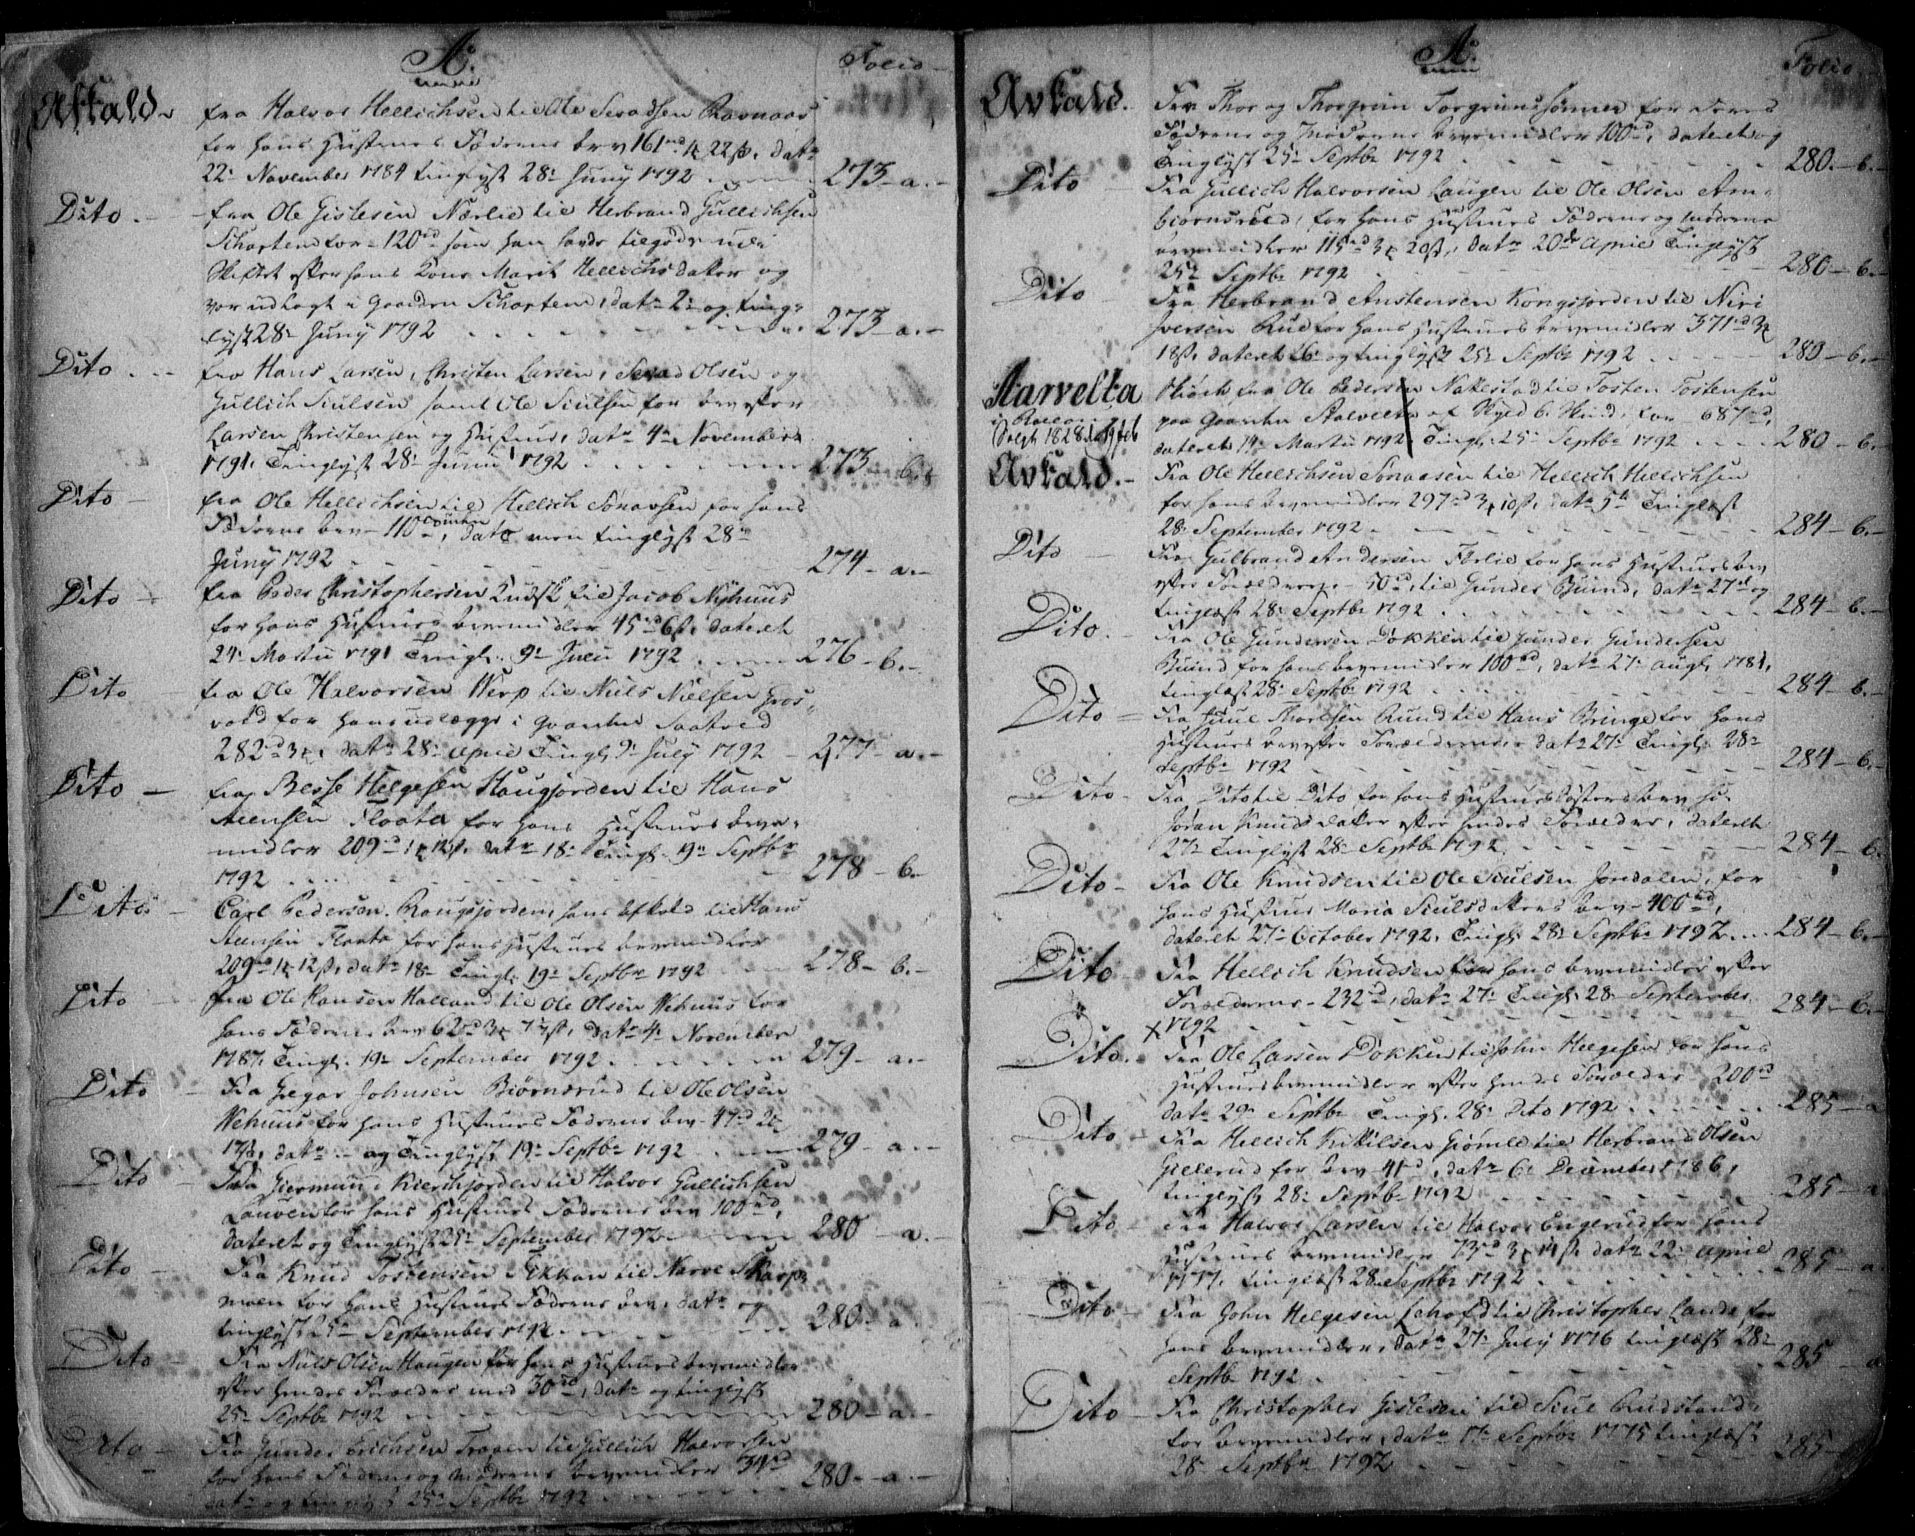 A.
Folio
Afkald
fra Halvor Hellichsen til Ole Sevadsen Ravnaas
for hans Hustrues Fædrene Arv 161 rd 1 22 s, dat
22 November 1784 tinglyst 28 Juny 1792 273 - a.
Dito. fra Ole Gislesen Nærlie til Herbrand Gullichsen
Schartem for 120 rd som han havde tilgode ved
Skiftet efter hans Kone Marit Hellichsdatter og
var udlagt i Gaarden Schartem, dat 2 og ting-
lyst 28 Juny 1792 273 - a.
Dito fra Hans Larsen, Christen Larsen, Sevad Olsen og
Gullich Siulsen samt Ole Siulsen for Arv efter
Larsen Christensen og Hustrue, dat 4 November
1791, Tinglyst 28 Juny 1792 273 - b.
Dito fra Ole Hellichsen til Hellich Sønavsen for hans
Fædrene Arv 110 rd, dato men tinglyst 28
Juny 1792 274 - a.
Dito fra Peder Christophersen Kudsk til Jacob Nyhuus
for hans Hustrues Arvemidler 45 rd 6 s, dateret
24 Martii 1791 Tingl. 9 July 1792 276 - b.
Dito fra Ole Halvorsen Werp til Niels Nielsen Gros-
vold for hans udlægge i Gaarden Saatved
282 rd 3, dat 28 April Tingl. 9 July 1792 277 - a.
Dito fra Besse Helgesen Haugjorden til Hans
Steensen Flaata for hans Hustrues Arve-
midler 209 rd 1 12 s, dat 18 Tingl. 19 Septbr
1792 278 - b.
Dito Carl Pedersen Raugsjorden, hans Afkald til Hans
Steensen Flaata for hans Hustrues Arvemidler
209 rd 1 12 s, dat 18 Tingl. 19 Septbr 1792 278 - b.
Dito fra Ole Hansen Halland til Ole Olsen Wehuus for
hans Fædrene Arv 62 rd 3 17 s, dat 4 November
1787, Tingl. 19 September 1792 279 - a.
Dito Fra Gregar Johnsen Biørnerud til Ole Olsen
Wehuus for hans Hustrues Fædrene Arv 47 rd 2
17 s, dat og Tinglyst 19 Septbr 1792 279 - a.
Dito Fra Giermund Kierchjorden til Halvor Gullichsen
Lauven for hans Hustrues Fædrene Arv 100 rd,
dateret og Tinglyst 25 September 1792 280 - a.
Dito Fra Knud Tostensen til Narve Skarp-
moen for hans Hustrues Fædrene Arv, dat og
tinglyst 25 September 1792 280 - a.
Dito Fra Niels Olsen Haugen for hans Hustrues Arvemidler
efter hendes Forældre med 30 rd, dat og tinglyst
25 Septbr 1792 280 - a.
Dito Fra Gunder Erichsen Traaen til Gullich Halvorsen
for hans Fædrene og Mødrene Arvemidler 34 rd
dat og tinglyst 25 Septbr 1792 280 - a.
A.
Folio
Avkald. Fra Thor og Thorgrim Torgrimssønner for deres
Fædrene og Mødrene Arvemidler 100 rd, dateret og
Tinglyst 25 Septbr 1792 280 - b.
Dito Fra Gullich Halvorsen Laugen til Ole Olsen Arn-
biørnsrued, for hans Hustrues Fædrene og Mødrene
Arvemidler 115 rd 3 20 s, dat 20 April Tinglyst
25 Septbr 1792 280 - b.
Dito Fra Herbrand Anstensen Kongsjorden til Niri
Iversen Rue for hans Hustrues Arvemidler 371 rd 3
18 s, dateret 26 og tinglyst 25 Septbr 1792 280 - b.
Aarvelta
Solgt 1828
Skiøde fra Ole Pedersen Nakkestad til Tosten Tostensen
paa Gaarden Aalvelta af Skyld 6 Hud, for 687 rd,
dateret 14 Martii 1792, Tingl. 25 Septbr 1792 280 - b.
Avkald. Fra Ole Hellichsen Sønaasen til Hellich Hellichsen
for hans Arvemidler 297 rd 3 10 s, dat 5 Tinglæst
28 September 1792 284 - b.
Dito Fra Gulbrand Andersen Forlie for hans Hustrues Arv
efter Forældrene 50 rd, til Gunder Buind, dat 27 og
tinglæst 28 Septbr 1792 284 - b.
Dito. Fra Ole Gundersen Dokken til Gunder Gundersen
Buind for hans Arvemidler 100 rd, dat 27 Aug. 1781,
tinglæst 28 Septbr 1792 284 - b.
Dito Fra Juul Thorsen Rund til Hans Bringe for hans
Hustrues Arv efter Forældrene dat 27 Tingl. 28
Septbr 1792 284 - b.
Dito Fra Dito til Dito for hans Hustrues Søsters Arv
Jøran Knudsdatter efter hendes Forældre, dateret
27 Tinglyst 28 Septbr 1792 284 - b.
Dito Fra Ole Knudsen til Ole Siulsen Jondalen, for
hans Hustrue Maria Siulsdatters Arv 400 rd,
dateret 27 October 1792, Tingl. 28 Septbr 1792 284 - b.
Dito Fra Hellich Knudsen for hans Arvemidler efter
Forældrene 232 rd, dat 27 Tingl. 28 September
1792 284 - b.
Dito. x Fra Ole Larsen Dokken til John Helgesen for hans
Hustrues Arvemidler efter hendes Forældre 200 rd
dat 29 Septbr Tingl. 28 Dito 1792 285 - a
Dito Fra Hellich Kittilsen Giømle til Herbrand Olsen
Gislerud for Arv 41 rd, dat 6 December 1786,
tinglyst 28 Septbr 1792 285 - a
Dito Fra Halvor Larsen til Halvor Engerud for hans
Hustrues Arvemidler 73 rd 3 14 s, dat 22 April
1777, tinglæst 28 Septbr 1792 285 - a
Dito Fra John Helgesen til Christopher Lande, for
hans Arvemidler, dat 27 July 1776 tinglæst 28
Septbr 1792 285 - a
Dito Fra Christopher Gislesen til Siul Rudstand,
for Arvemidler, dat 17 Septbr 1775 tinglæst
28 Septbr 1792 285